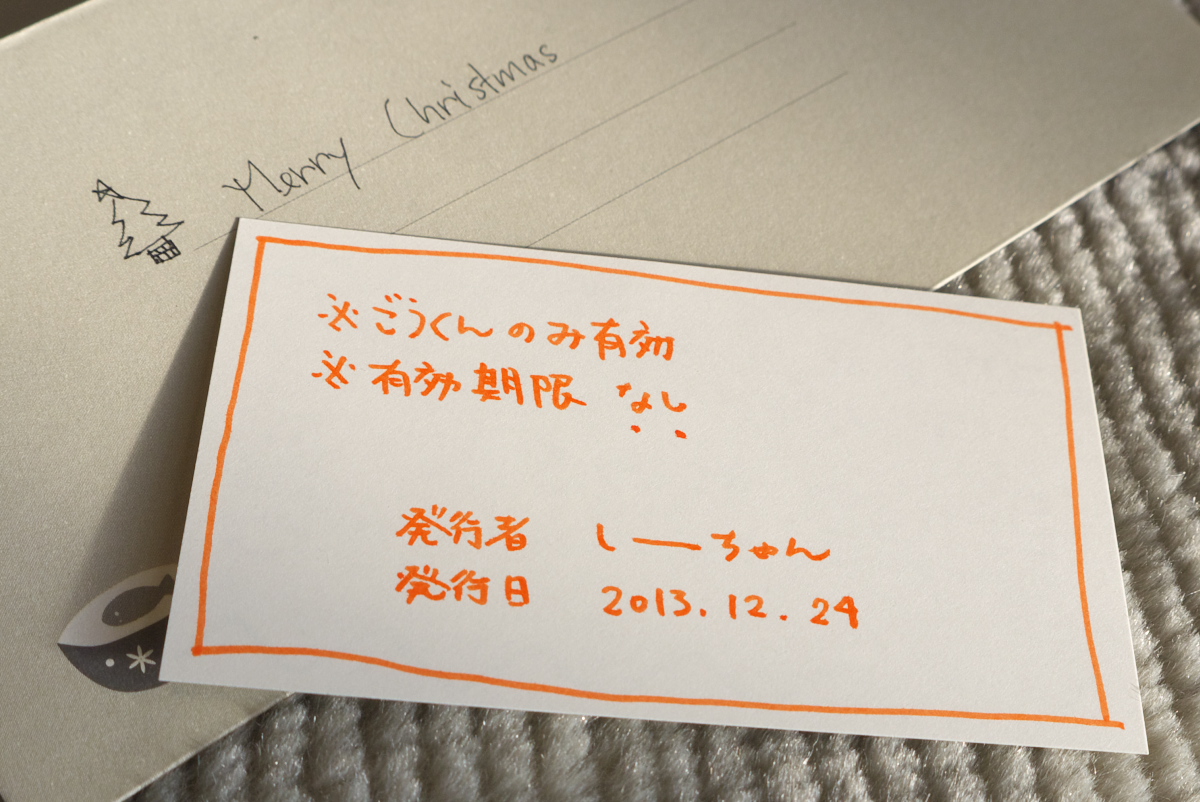 Merry Christmas
※ごうくんのみ有効
※有効期限 なし
発行者 しーちゃん
発行日 2013.12.24